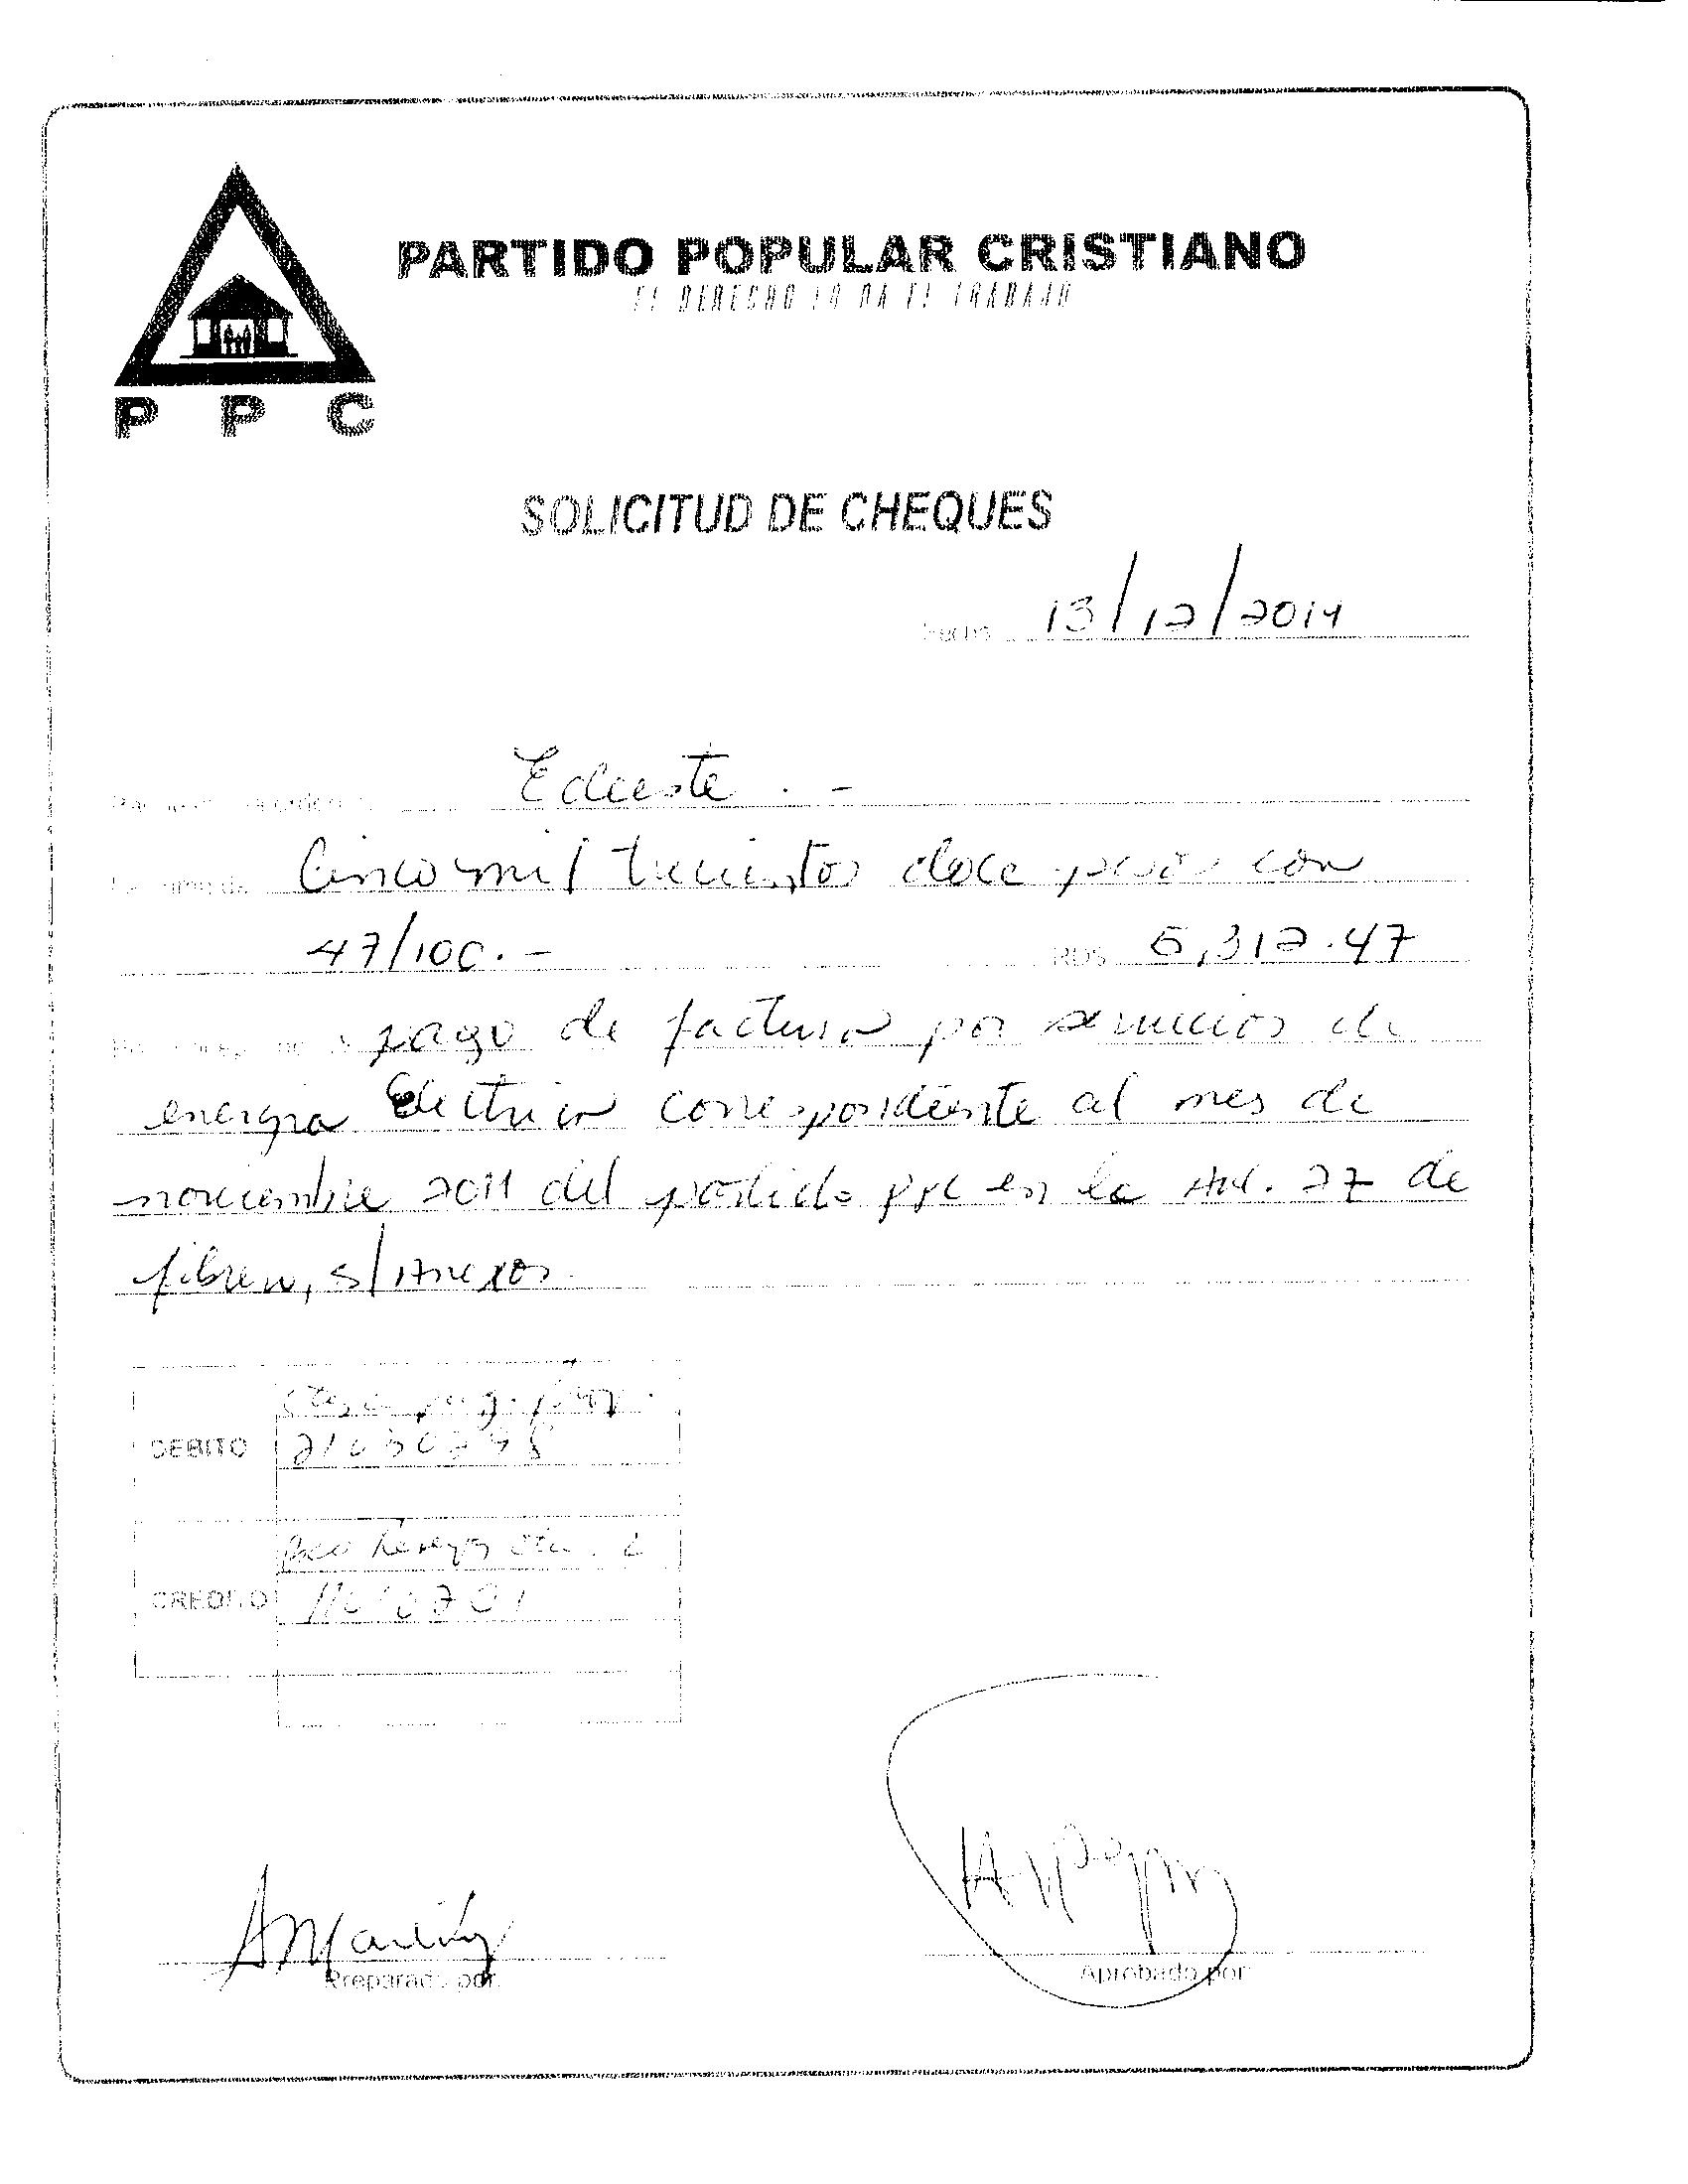 PARTIDO POPULAR CRISTIANO
EL DERECHO LO DA EL TRABAJO
P P C
SOLICITUD DE CHEQUES
Fecha 13/12/2014
Edeeste . -
Cinco mil trecientos doce pesos con
47/100.- RD$ 5,312.47
pago de factura por servicios de
energia Electrica correspondiente al mes de
noviembre 2014 del partido PPC en la Av. 27 de
febrero, s/Anexos.
DEBITO
CREDITO
Preparado por:
Aprobado por: